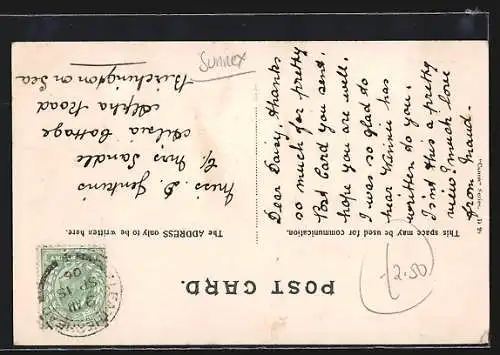 POST CARD.
This space may be used for communication.
The ADDRESS only to be written here.
Dear Daisy, thanks
so much for pretty
Post Card you sent.
hope you are well.
I was so glad to
hear Winnie has
written to you.
Isnt this a pretty
view? much love
from Maud.
Miss. D. Jenkins
c/o Mrs Sandle
Ailsa Cottage
Alpha Road
Birchington on Sea
Sussex
2.50
SP 15
06